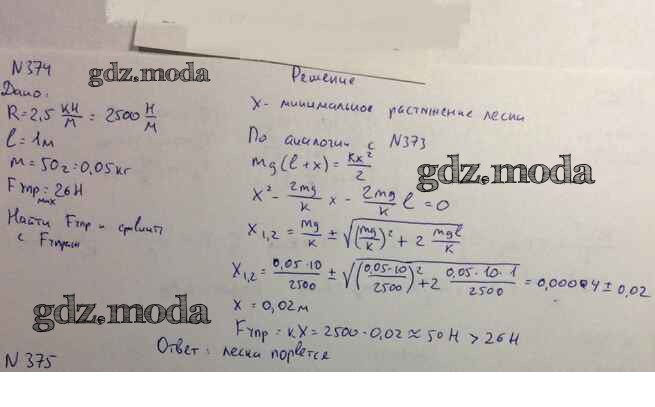 N374
gdz.moda
Решение
Дано:
R = 2,5 кН/м = 2500 Н/м
l = 1м
m = 50г = 0,05кг
Fупр max = 26Н
Найти Fупр и сравнить
с Fупрmax
X - минимальное растяжение лески
По аналогии с N373
mg(l+x) = kx²/2
gdz.moda
x² - 2mg/k x - 2mg/k l = 0
X₁,₂ = mg/k ± √((mg/k)² + 2 mgl/k)
X₁,₂ = 0,05·10/2500 ± √((0,05·10/2500)² + 2 0,05·10·1/2500) = 0,0004 ± 0,02
X = 0,02м
gdz.moda
Fупр = kX = 2500·0,02 ≈ 50Н > 26Н
Ответ: леска порвется
N375